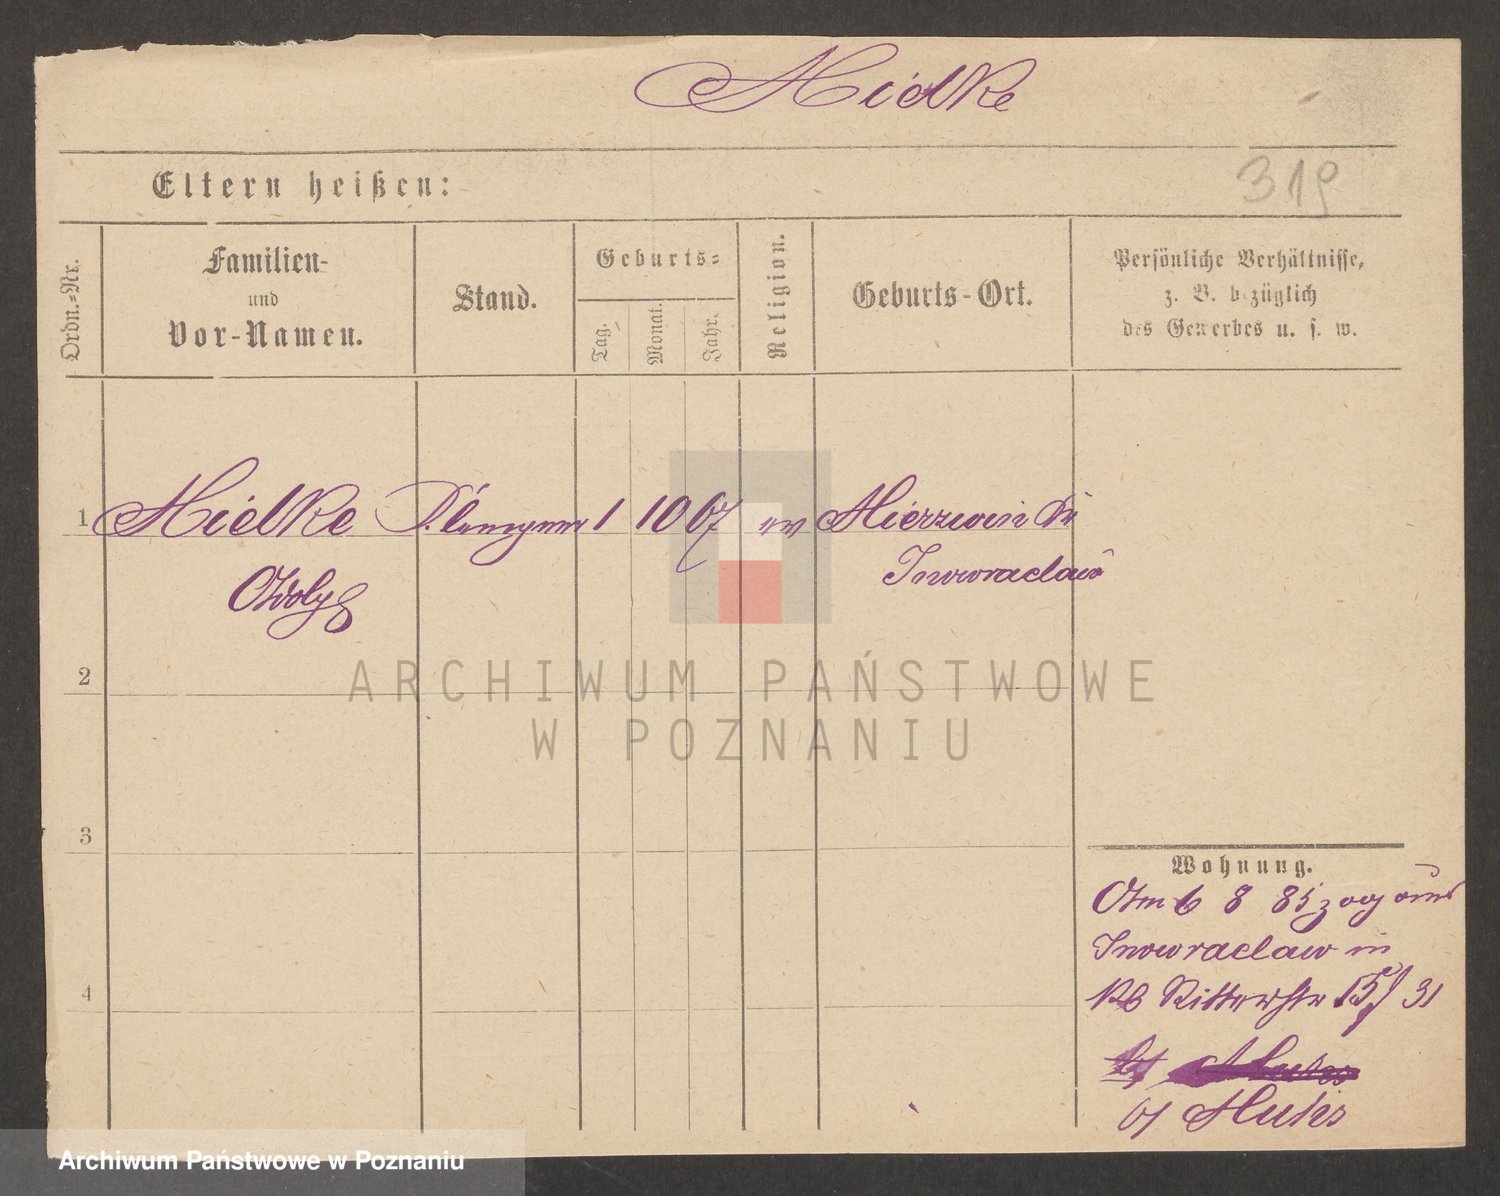 Mielke
319
Eltern heißen:
Ordn.-Nr.
Familien-
und
Vor-Namen.
Stand.
Geburts-
Tag.
Monat.
Jahr.
Religion.
Geburts-Ort.
Persönliche Verhältnisse,
z. B. bezüglich
des Gewerbes u. s. w.
1 Mielke 1 10 67 ev Mierzwin Kr
Inowraclaw
2
3
4
Wohnung.
Am 6 8 85 zog aus
Inowraclaw in
Ritterstr 15/31
ARCHIWUM PAŃSTWOWE
W POZNANIU
Archiwum Państwowe w Poznaniu